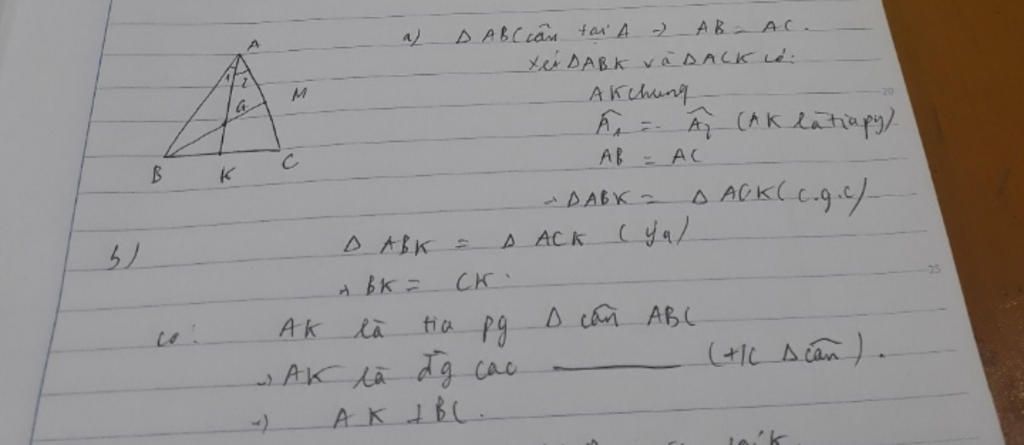 a) Δ ABC cân tại A → AB = AC.
Xét ΔABK và ΔACK có:
AK chung
Â₁ = Â₂ (AK là tia pg)
AB = AC
→ ΔABK = ΔACK (c.g.c)
A
1 2
M
G
B K C
b) Δ ABK = Δ ACK (ý a)
→ BK = CK.
Có: AK là tia pg Δ cân ABC
→ AK là đg cao ——— (t/c Δ cân).
→ AK ⊥ BC.
20
25